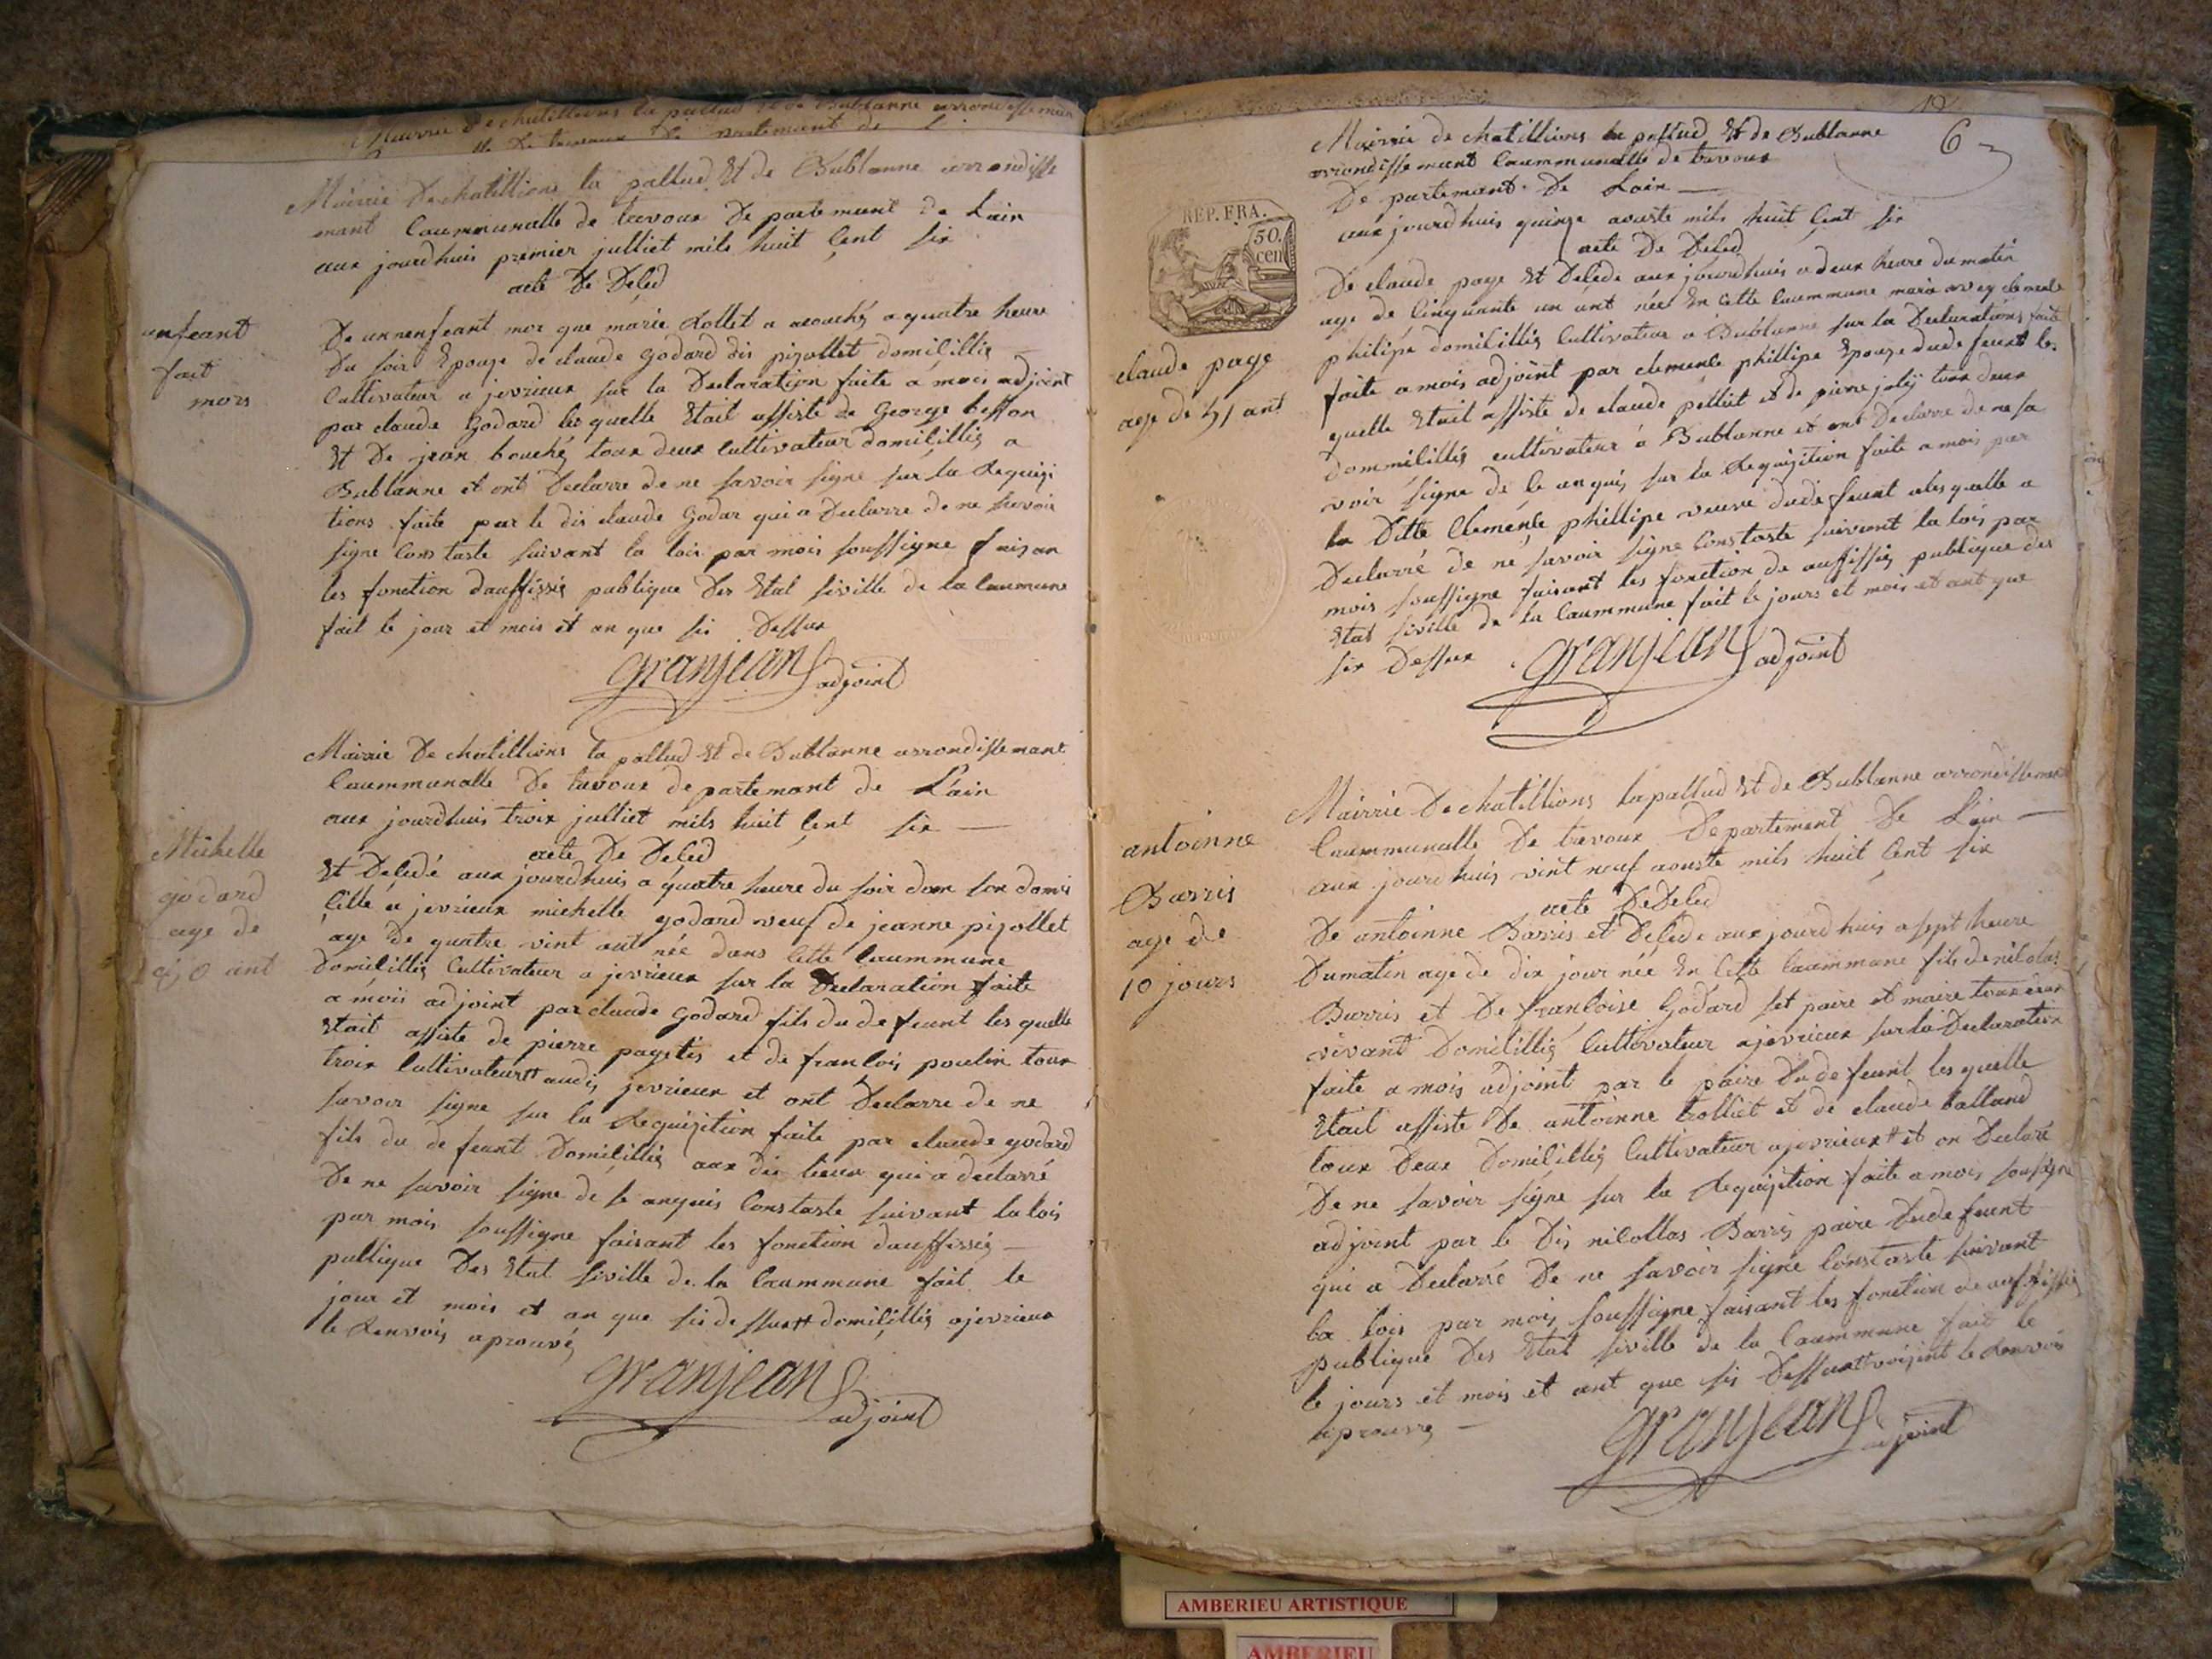 Mairie de chatillions la pallud et de Bublanne arrondissemen
Mairie De chatillions la pallud Et de Bublanne arrondisse
mant Caummunalle de trevoux De partemant de Lain
aux jourdhuis premier julliet mils huit Cent six
acte De Deced
enfeant
fait
mors
De un nenfeant mor que marie Rollet a acouchés a quatre heure
Du soir Epouze de claude godard dis pizollet domicilliés
Cultivateur a jevrieux sur la Declaration faite a mois adjoint
par claude Godard les quelle Etait assiste de George besson
Et De jean bouchés toux deux cultivateur domicilliés a
Bublanne et ont Declarre de ne savoir signe sur la Requizi
tions faite par le dis claude Godar qui a Declarre de ne savoir
signe Constaste suivant la lois par mois soussigne faizan
les fonction dauffissiés publique Des Etat siville de la Caumune
fait le jour et mois et an que sis Dessux
granjean adjoint
Mairie De chatillions la pallud Et de Bublanne arrondissemant
Caummunalle De trevoux departemant de Lain
aux jourdhuis troix julliet mils huit Cent six
acte De Deced
Michelle
godard
age de
80 ant
Et Decedé aux jourdhuis a quatre heure du soir dan son domi
Cille a jevrieux michelle godard veuf de jeanne pizollet
age De quatre vint ant née dans Cette Caummune
Domicilliés Cultivateur a jevrieux sur la Declaration faite
a mois adjoint par claude godard fils du defeunt les quelle
Etait assiste de pierre pagetis et de francois poulin toux
troix Cultivateur# audis jevrieux et ont Declarre de ne
savoir signe sur la Requizition faite par claude godard
fils du defeunt Domicilliés aux dis lieux qui a declarré
De ne savoir signe de se anquis Constaste suivant la lois
par mois soussigne faisant les fonction dauffissiés
publique Des Etat siville de la Caummune fait le
jour et mois et an que sis dessux# domicilliés a jevrieux
le Renvois aprouvés
granjean adjoint
19
6
Mairie de chatillions la pallud Et de Bublanne
arrondissemant Caummunalle de trevoux
De partemant De Lain
aux jourdhuis quinze aouste mils huit Cent six
acte De Deced
REP. FRA.
50.
cen
claude page
age de 51 ant
De claude page Et Decede aux jourdhuis a deux heure du matin
age de Cinquante un ant née En Cette Caummune marie avez clemence
philipe domicilliés Cultivateur a Bublanne sur la Declarations fait
faite a mois adjoint par clemence phillipe Epouze dudefeunt les
quelle Etait assiste de claude pelliet et de pierre jolij toux deux
dommicilliés cultivateur a Bublanne et ont Declarre de ne sa
voir signe de se anquis sur la Requizition faite a mois par
la Ditte Clemence phillipe veuve dudefeunt alesquelle a
Declarré de ne savoir signe Constaste suivant la lois par
mois soussigne faisant les fonction de auffissiés publique des
Etat siville de la Caummune fait le jours et mois et ant que
sis Dessux
granjean adjoint
Mairrie De chatillions la pallud Et de Bublanne arrondissemant
Caummunalle De trevoux Departement De Lain
aux jourdhuis vint neuf aouste mils huit Cent six
acte De Deced
antoinne
Barris
age de
10 jours
De antoinne Barris et Decede aux jourdhuis a sept heure
Dumatin age de dix jour née En Cette Caummune fils de nicolas
Barris et De francoise Godard set paire et maire toux deux
vivant Domicilliés Cultivateur a jevrieux sur la Declaration
faite a mois adjoint par le paire Du defeunt les quelle
Etait assiste De antoinne trolliet et de claude balland
toux Deux Domicilliés Cultivateur a jevrieux# et on Declaré
De ne savoir signe sur la Requizition faite a mois sousigne
adjoint par le Dis nicollas Barris paire Dudefeunt
qui a Declarré De ne savoir signe Constaste suivant
la lois par mois soussigne faisant les fonction de auffissiés
publique Des Etat siville de la Caummune fait le
le jours et mois et ant que sis Dessux# voisint le Renvois
aprouvés
granjean adjoint
AMBERIEU ARTISTIQUE
AMBERIEU